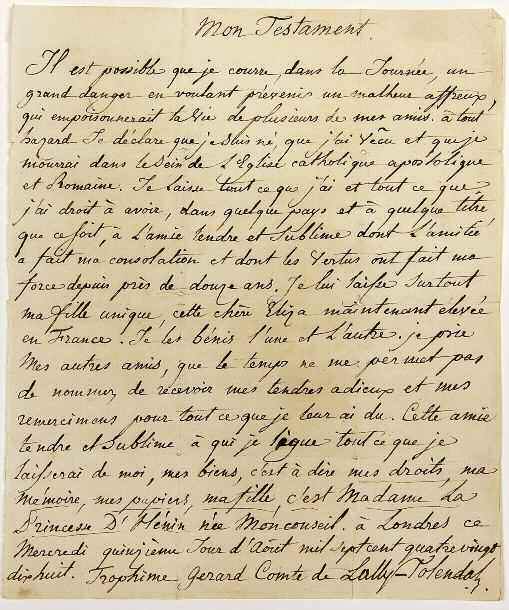 Mon Testament.
Il est possible que je courre, dans la Journée, un
grand danger en voulant prévenir un malheur affreux,
qui empoisonnerait la Vie de plusieurs de mes amis. à tout
hazard Je déclare que je suis né, que j'ai Vécu et que je
mourrai dans le Sein de L'Eglise catholique apostolique
et Romaine. Je laisse tout ce que j'ai et tout ce que
j'ai droit à avoir, dans quelque pays et à quelque titre
que ce soit, à L'amie tendre et Sublime dont L'amitié
a fait ma consolation et dont les Vertus ont fait ma
force depuis près de douze ans. Je lui laisse Surtout
ma fille unique, cette chère Eliza maintenant elevée
en France. Je les bénis l'une et L'autre. je prie
Mes autres amis, que le temps ne me permet pas
de nommer, de recevoir mes tendres adieux et mes
remercimens pour tout ce que je leur ai du. Cette amie
tendre et Sublime à qui je lègue tout ce que je
laisserai de moi, mes biens, c'est à dire mes droits, ma
Mémoire, mes papiers, ma fille c'est Madame La
Princesse D'Hénin née Monconseil. à Londres ce
Mercredi quinzieme Jour d'Août mil Sept cent quatre vingt
dix huit. Trophime Gerard Comte de Lally-Tolendal.